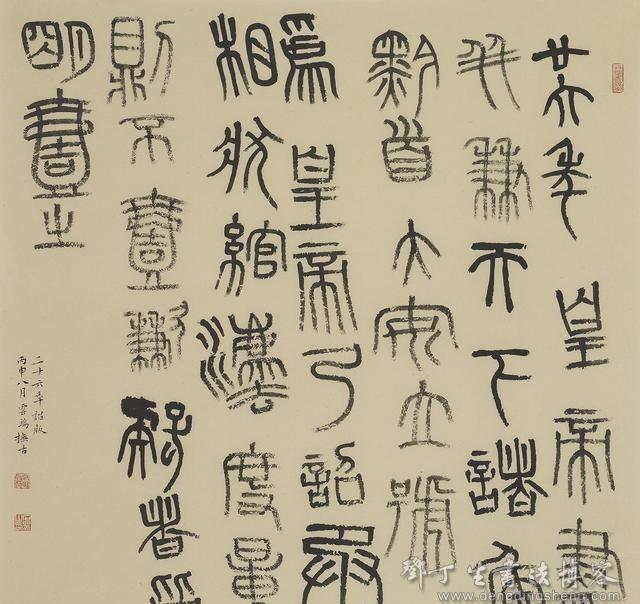 廿六年皇帝盡
并兼天下諸侯
黔首大安立號
爲皇帝乃詔丞
相狀綰灋度量
則不壹歉疑者皆
明壹之
二十六年詔版
丙申八月雲撫古
鄧丁生書法博客
www.dengdingsheng.com